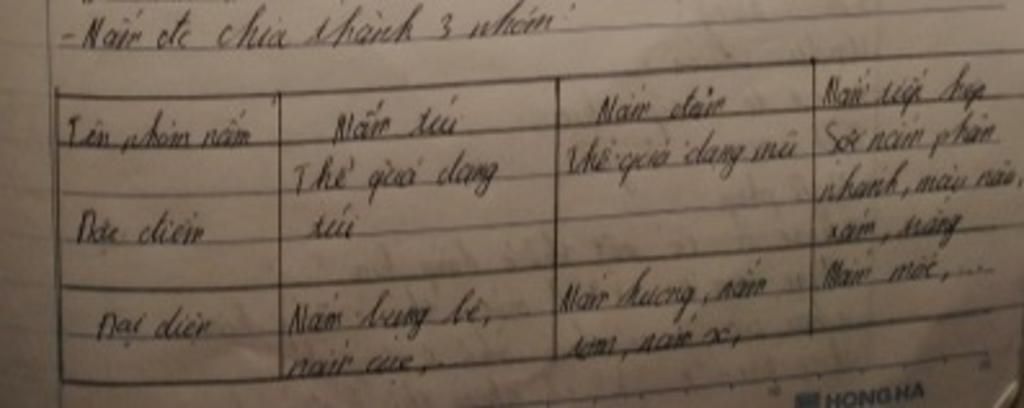 - Nấm đc chia thành 3 nhóm:
Tên nhóm nấm
Nấm túi
Nấm đảm
Nấm tiếp hợp
Đặc điểm
Thể quả dạng
túi
Thể quả dạng mũ
Sợi nấm phân
nhánh, màu nâu,
xám, trắng
Đại diện
Nấm bụng dê,
nấm cục, ...
Nấm hương, nấm
rơm, nấm sò, ...
Nấm mốc, ...
HONG HA